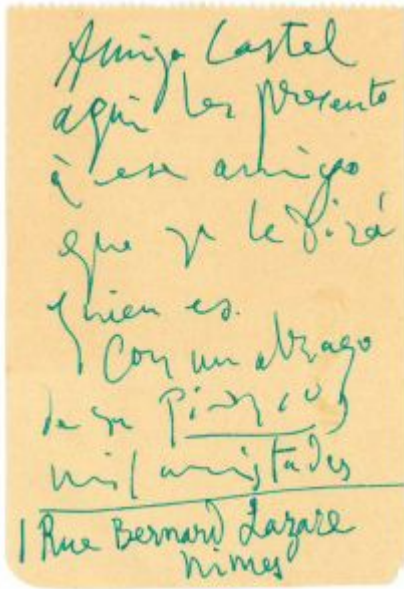 Amigo Castel
aqui les presento
à ese amigo
que ya le dirá
quien es.
Con un abrazo
de su Picasso
mil amistades
1 Rue Bernard Lazare
Nimes